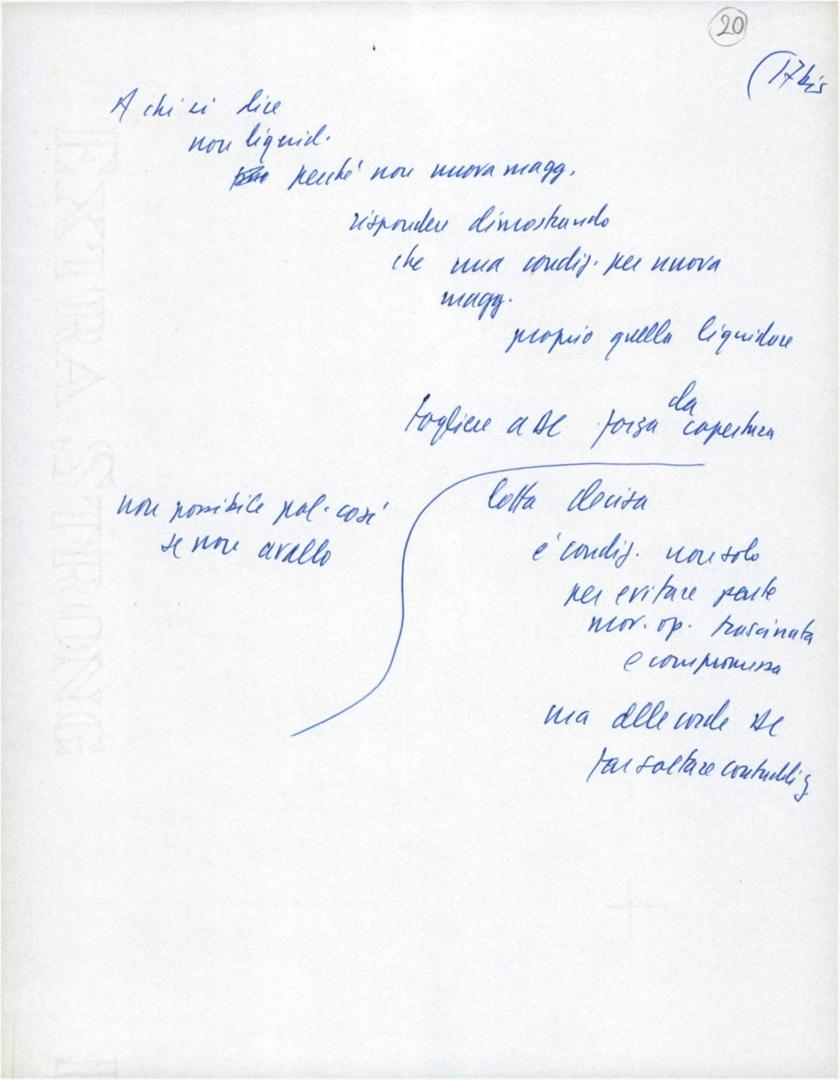 20
(17 bis
A chi ci dice
non liquid.
perché non nuova magg.
rispondere dimostrando
che una condiz. per nuova
magg.
proprio quella liquidare
togliere a DC forza da copertura
non possibile pol. così
se non avallo
lotta decisa
è condiz. non solo
per evitare parte
mov. op. trascinata
e compromessa
ma alle corde DC
far saltare contraddiz.
EXTRA STRONG